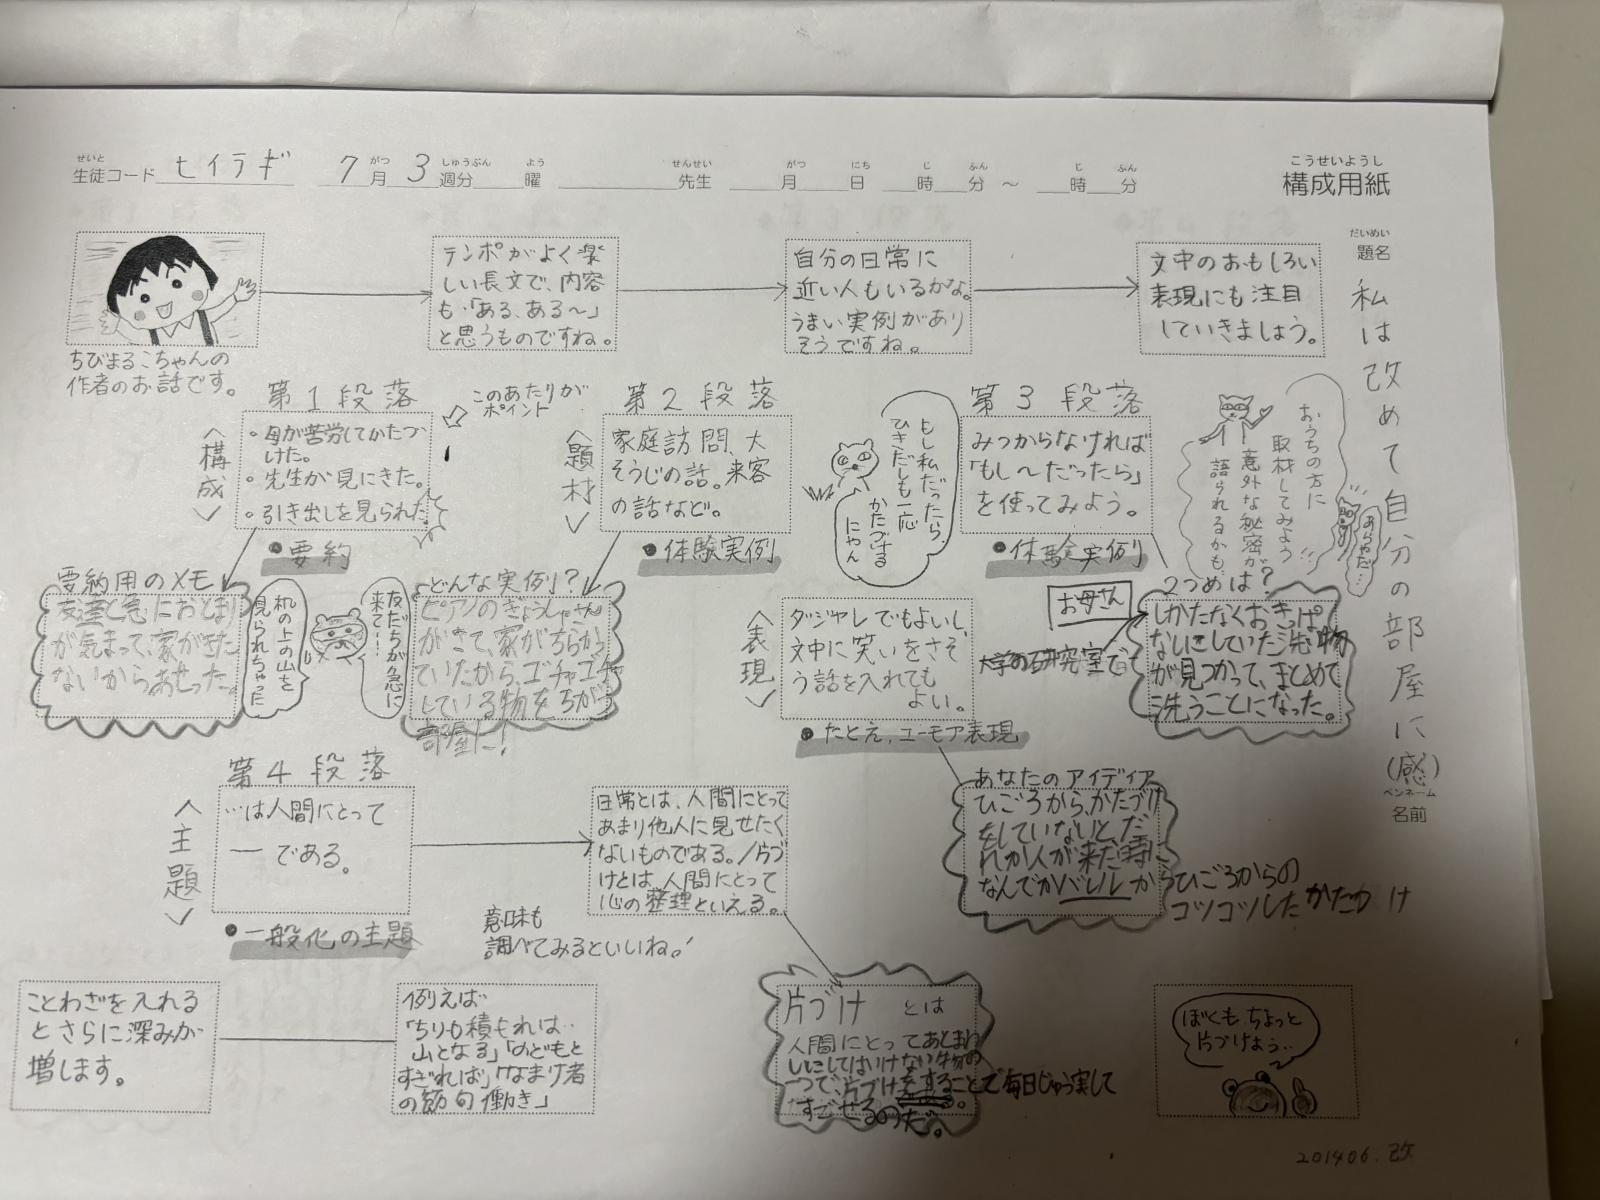 せいと
生徒コード セイラギ 7月 3週分 曜 先生 月 日 時 分 ～ 時 分
がつ しゅうぶん よう せんせい がつ にち じ ふん じ ふん
こうせいようし
構成用紙
だいめい
題名
私は改めて自分の部屋に(感)
ペンネーム
名前
ちびまるこちゃんの
作者のお話です。
テンポがよく楽
しい長文で、内容
も「ある、ある～」
と思うものですね。
自分の日常に
近い人もいるかな。
うまい実例があり
そうですね。
文中のおもしろい
表現にも注目
していきましょう。
第1段落
このあたりが
ポイント
〈構成〉
・母が苦労してかたづ
けた。
・先生が見にきた。
・引き出しを見られた。
●要約
要約用のメモ
友達と急におとまり
が気まって、家がきた
ないからあせった。
机の上の山を
見られちゃった
第2段落
〈題材〉
家庭訪問、大
そうじの話。来客
の話など。
●体験実例
どんな実例？
ピアノのきょうしゃさん
がきて、家がちらかっ
ていたから、ゴチャゴチャ
している物をちがう
部屋に！
友だちが急に
来て…
もし私だったら、
ひきだしも一応
かたづける
にゃん
第3段落
みつからなければ
「もし～だったら」
を使ってみよう。
●体験実例
おうちの方に
取材してみよう
意外な秘密が
語られるかも。
あらやだ…
2つめは？
お母さん
大学の研究室で
しかたなくおきっぱ
なしにしていた洗い物
が見つかって、まとめて
洗うことになった。
〈表現〉
ダジャレでもよいし、
文中に笑いをさそ
う話を入れても
よい。
●たとえ、ユーモア表現
あなたのアイディア
ひごろから、かたづけ
をしていないと、だ
れか人が来た時に
なんでかバレルからひごろからの
コツコツしたかたづけ
第4段落
〈主題〉
…は人間にとって
― である。
●一般化の主題
日常とは、人間にとって
あまり他人に見せたく
ないものである。／片づ
けとは、人間にとって
心の整理といえる。
意味も
調べてみるといいね！
ことわざを入れる
とさらに深みが
増します。
例えば
「ちりも積もれば…
山となる」「のどもと
すぎれば」「なまけ者
の節句働き」
片づけ とは
人間にとってあとまわ
しにしてはいけない物の
一つで、片づけをすることで毎日じゅう実して
すごせるのだ。
ぼくもちょっと
片づけよう…
201406.改